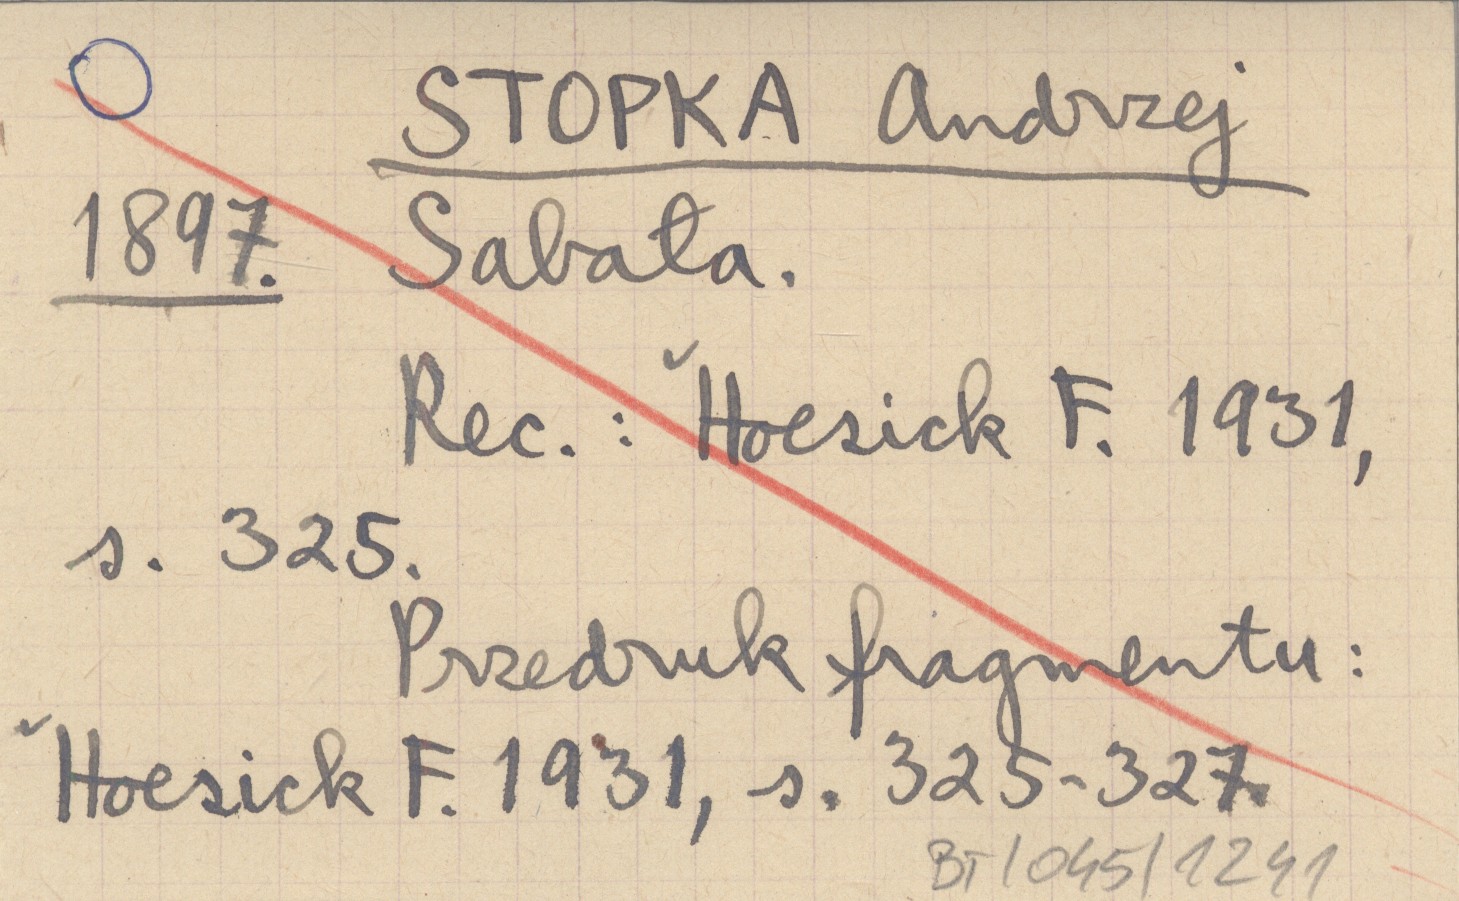 STOPKA Andrzej
1897. Sabała.
Rec.: Hoesick F. 1931,
s. 325.
Przedruk fragmentu:
Hoesick F. 1931, s. 325-327.
BT/045/1241